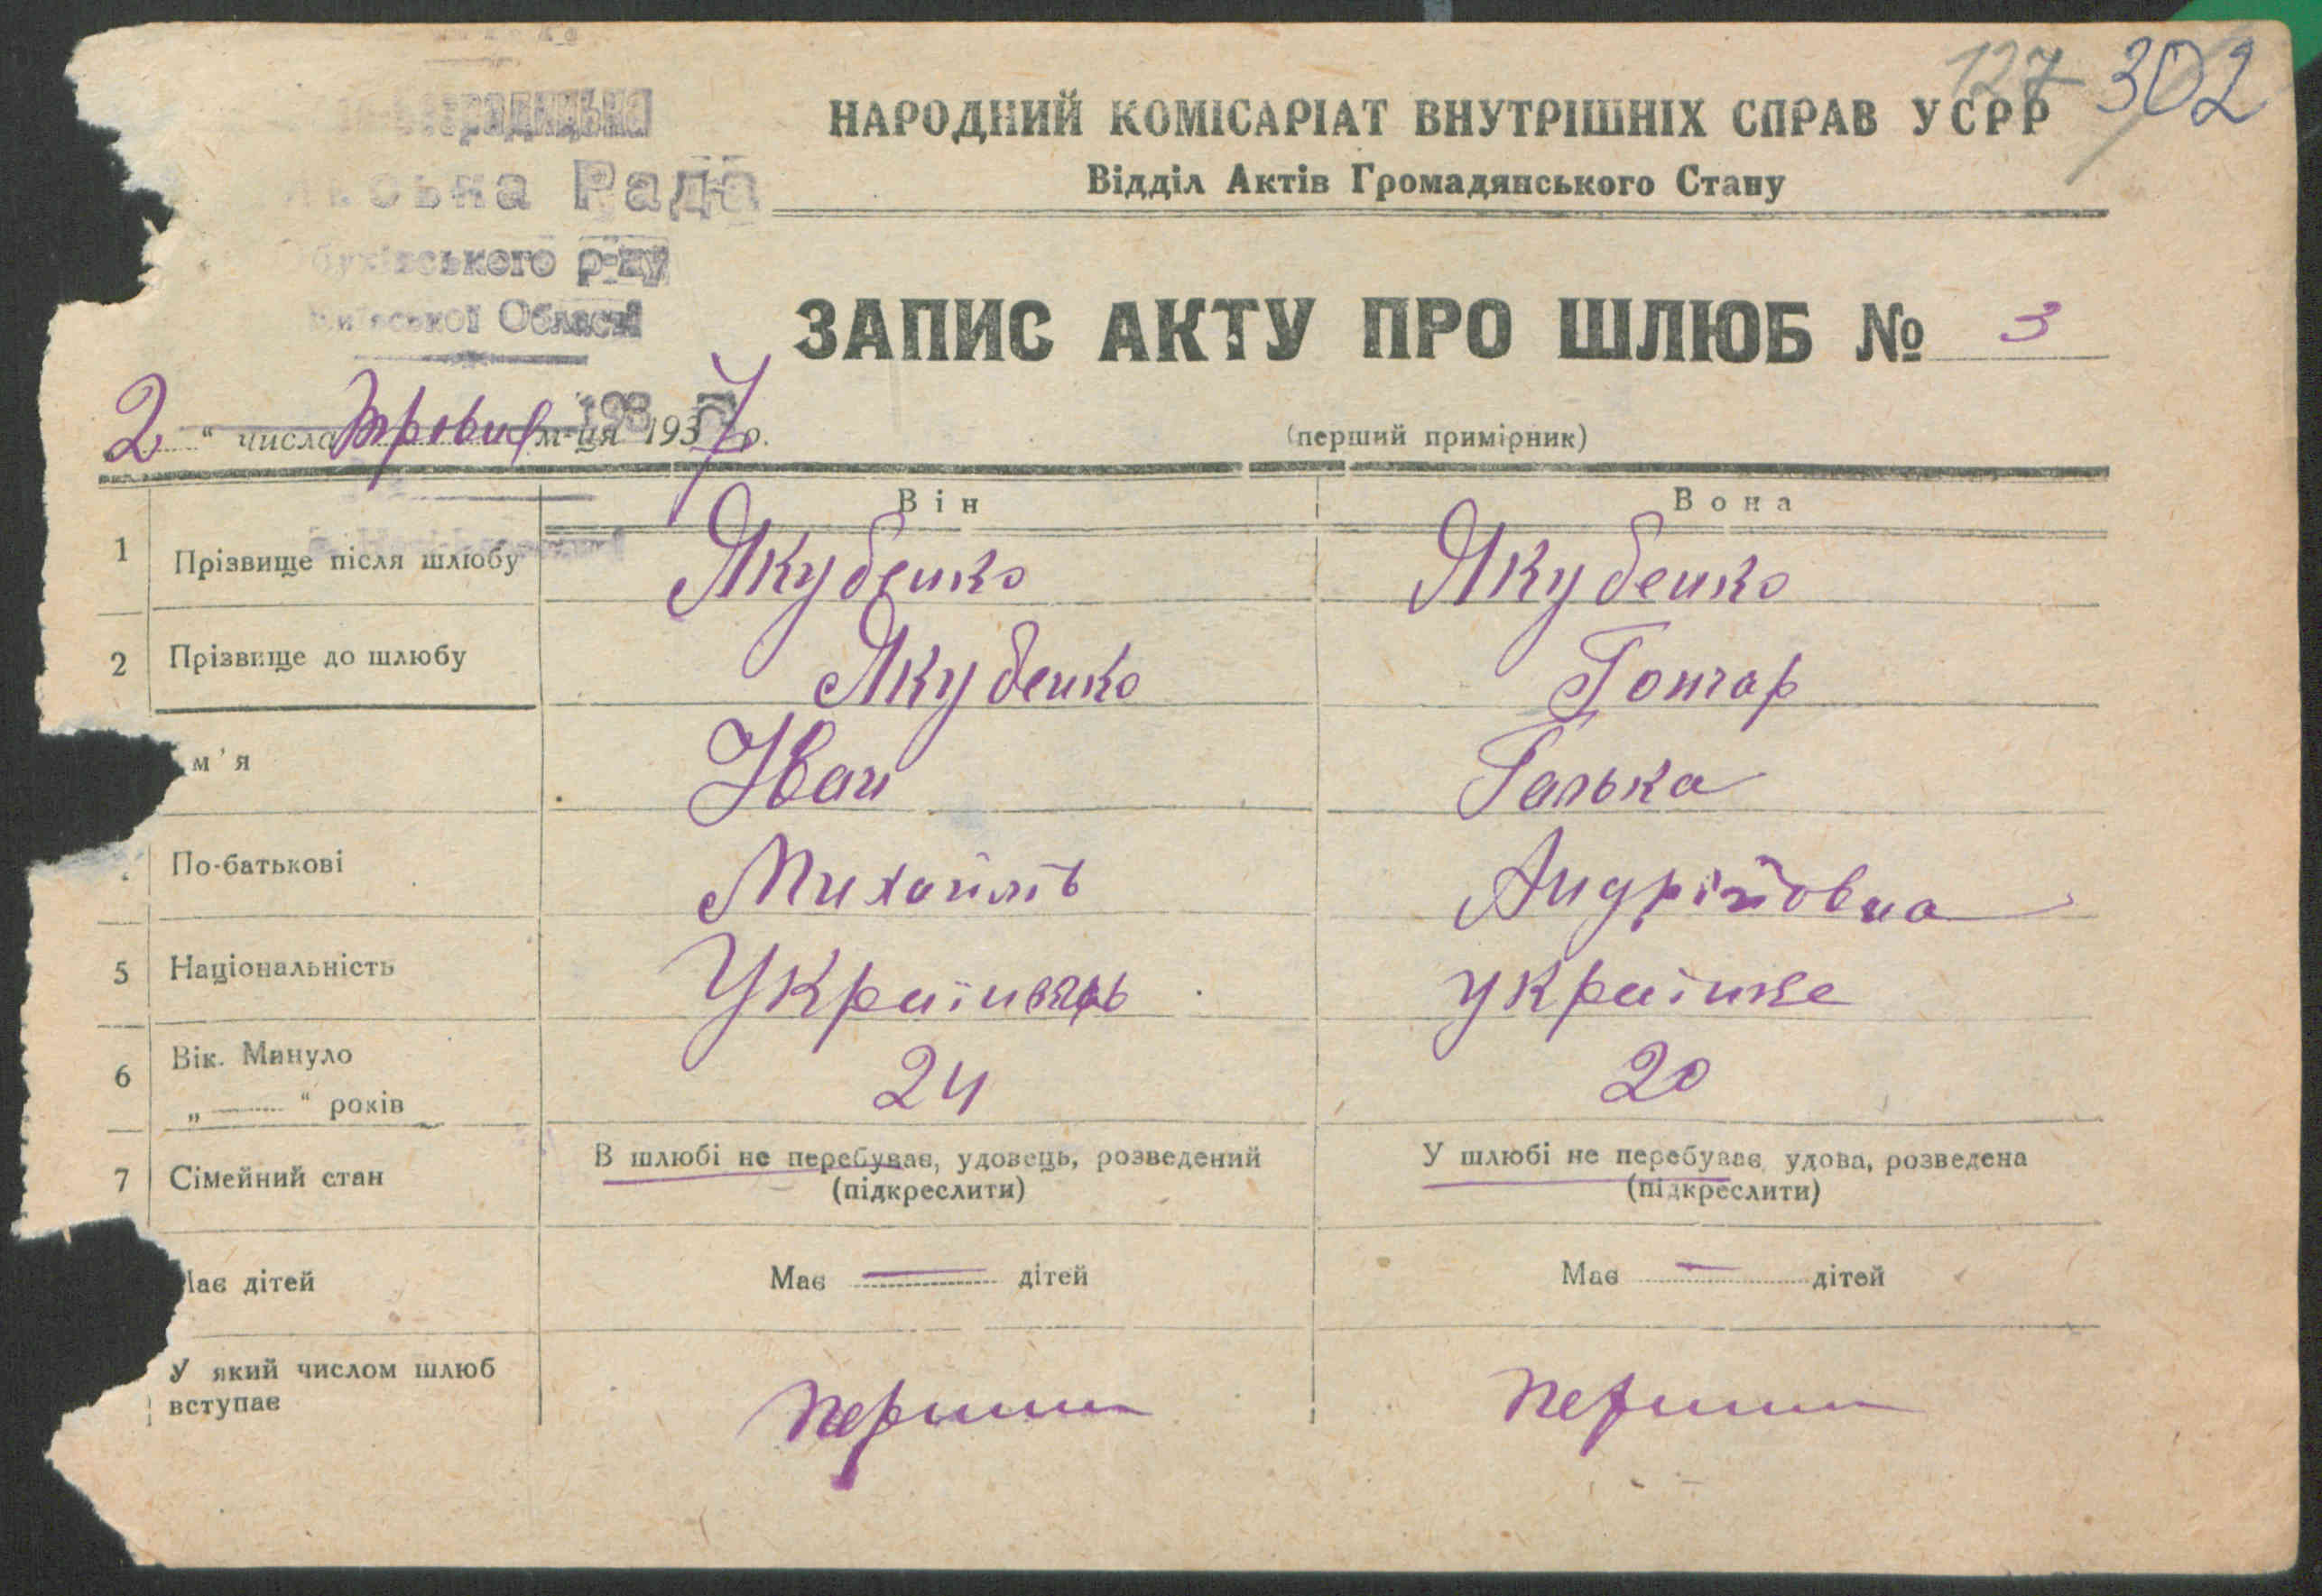 127 302
НАРОДНИЙ КОМІСАРІАТ ВНУТРІШНІХ СПРАВ УСРР
Відділ Актів Громадянського Стану
Рада
р-ну
Області
ЗАПИС АКТУ ПРО ШЛЮБ № 3
2 " числа м-ця 1937 р.
(перший примірник)
Він Вона
1 Прізвище після шлюбу Якубенко Якубенко
2 Прізвище до шлюбу Якубенко Гончар
м'я Іван Галька
По-батькові Михайлів Андрійовна
5 Національність Українець українка
6 Вік. Минуло
„ " років 24 20
7 Сімейний стан В шлюбі не перебуває, удовець, розведений У шлюбі не перебуває, удова, розведена
(підкреслити) (підкреслити)
ає дітей Має — дітей Має — дітей
У який числом шлюб
вступає